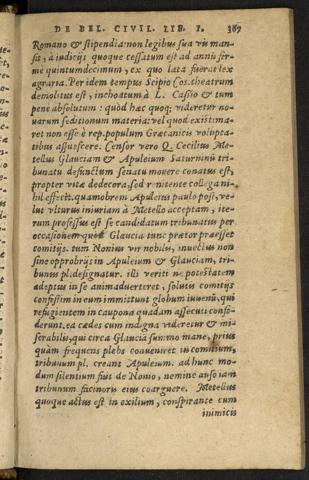 DE BEL. CIVIL. LIB. I. 387
Romano & stipendia: non legibus sua vis man-
sit, à iudicijs quoque cessatum est ad annis fer-
me quintumdecimum, ex quo lata fuerat lex
agraria. Per idem tempus Scipio Cos. theatrum
demolitus est, inchoatum à L. Cassio & tum
pene absolutum: quòd hæc quoq; videretur no-
uarum seditionum materia: vel quod existima-
ret non esse è rep. populum Græcanicis volupta-
tibus assuescere. Censor vero Q. Cecilius Me-
tellus Glauciam & Apuleium Saturninū tri-
bunatu defunctum senatu mouere conatus est,
propter vitæ dedecora, sed renitente collega ni-
hil effecit. quamobrem Apuleius paulo post, ve-
lut vlturus iniuriam à Metello acceptam, ite-
rum professus est se candidatum tribunatus per
occasionem quod Glaucia tunc prætor præesset
comitijs. tum Nonius vir nobilis, inuectus non
sine opprobrijs in Apuleium & Glauciam, tri-
bunus pl. designatur. illi veriti ne potestatem
adeptus in se animaduerteret, solutis comitijs
confestim in eum immittunt globum iuuenū, qui
refugientem in caupona quadam assecuti confo-
derunt. ea cædes cum indigna videretur & mi-
serabilis, qui circa Glauciā summo mane, prius
quàm frequens plebs conueniret in comitium,
tribunum pl. creant Apuleium. ad hunc mo-
dum silentium fuit de Nonio, nemine auso iam
tribunum facinoris eius coarguere. Metellus
quoque actus est in exilium, conspirante cum
inimicis